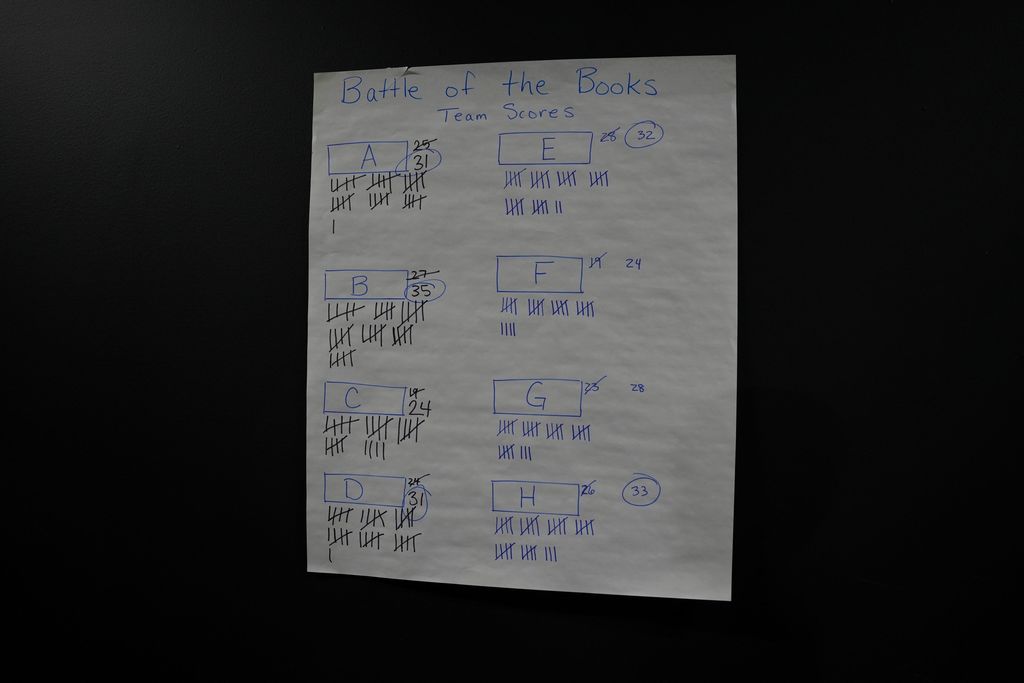 Battle of the Books
Team Scores
A 25
31
B 27
35
C 19
24
D 24
31
E 28 32
F 19 24
G 23 28
H 26 33